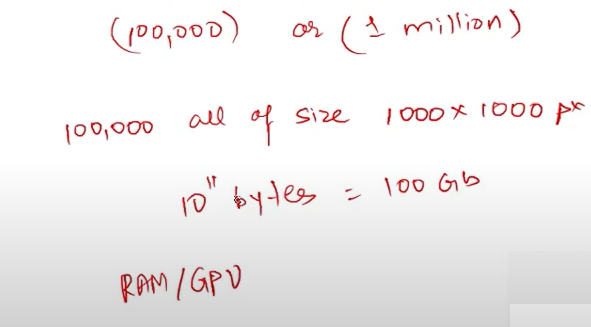 (100,000) or (1 million)
100,000 all of size 1000 x 1000 px
10¹¹ bytes = 100 Gb
RAM/GPU